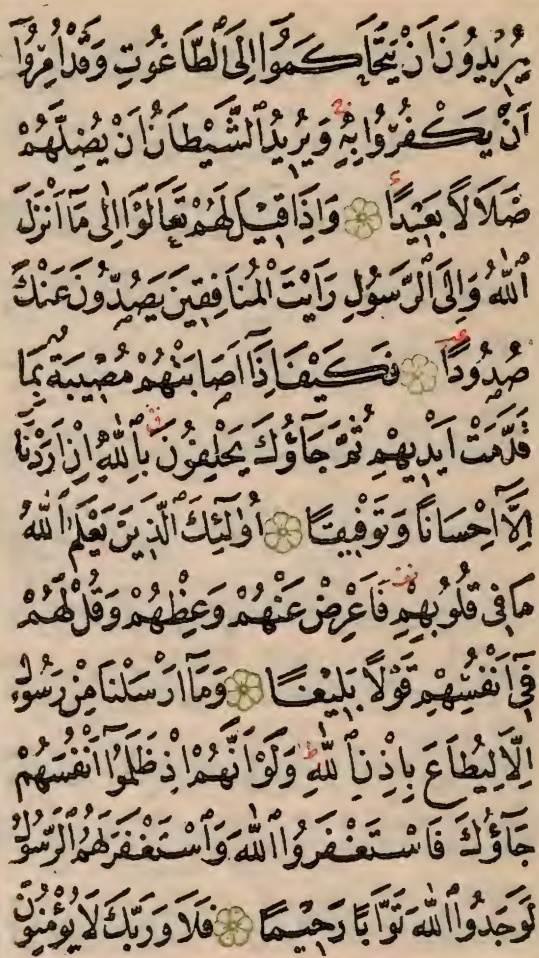 يُرِيدُونَ أَنْ يَتَحَاكَمُوا إِلَى ٱلطَّاغُوتِ وَقَدْ أُمِرُوٓا
أَنْ يَكْفُرُوا بِهِ وَيُرِيدُ ٱلشَّيْطَانُ أَنْ يُضِلَّهُمْ
ضَلَالًا بَعِيدًا وَإِذَا قِيلَ لَهُمْ تَعَالَوْا إِلَى مَآ أَنْزَلَ
ٱللَّهُ وَإِلَى ٱلرَّسُولِ رَأَيْتَ ٱلْمُنَافِقِينَ يَصُدُّونَ عَنْكَ
صُدُودًا فَكَيْفَ إِذَآ أَصَابَتْهُمْ مُصِيبَةٌ بِمَا
قَدَّمَتْ أَيْدِيهِمْ ثُمَّ جَآؤُكَ يَحْلِفُونَ بِٱللَّهِ إِنْ أَرَدْنَآ
إِلَّآ إِحْسَانًا وَتَوْفِيقًا أُولَٰٓئِكَ ٱلَّذِينَ يَعْلَمُ ٱللَّهُ
مَا فِي قُلُوبِهِمْ فَأَعْرِضْ عَنْهُمْ وَعِظْهُمْ وَقُلْ لَهُمْ
فِيٓ أَنْفُسِهِمْ قَوْلًا بَلِيغًا وَمَآ أَرْسَلْنَا مِنْ رَسُولٍ
إِلَّا لِيُطَاعَ بِإِذْنِ ٱللَّهِ وَلَوْ أَنَّهُمْ إِذْ ظَلَمُوٓا أَنْفُسَهُمْ
جَآؤُكَ فَٱسْتَغْفَرُوا ٱللَّهَ وَٱسْتَغْفَرَ لَهُمُ ٱلرَّسُولُ
لَوَجَدُوا ٱللَّهَ تَوَّابًا رَحِيمًا فَلَا وَرَبِّكَ لَا يُؤْمِنُونَ